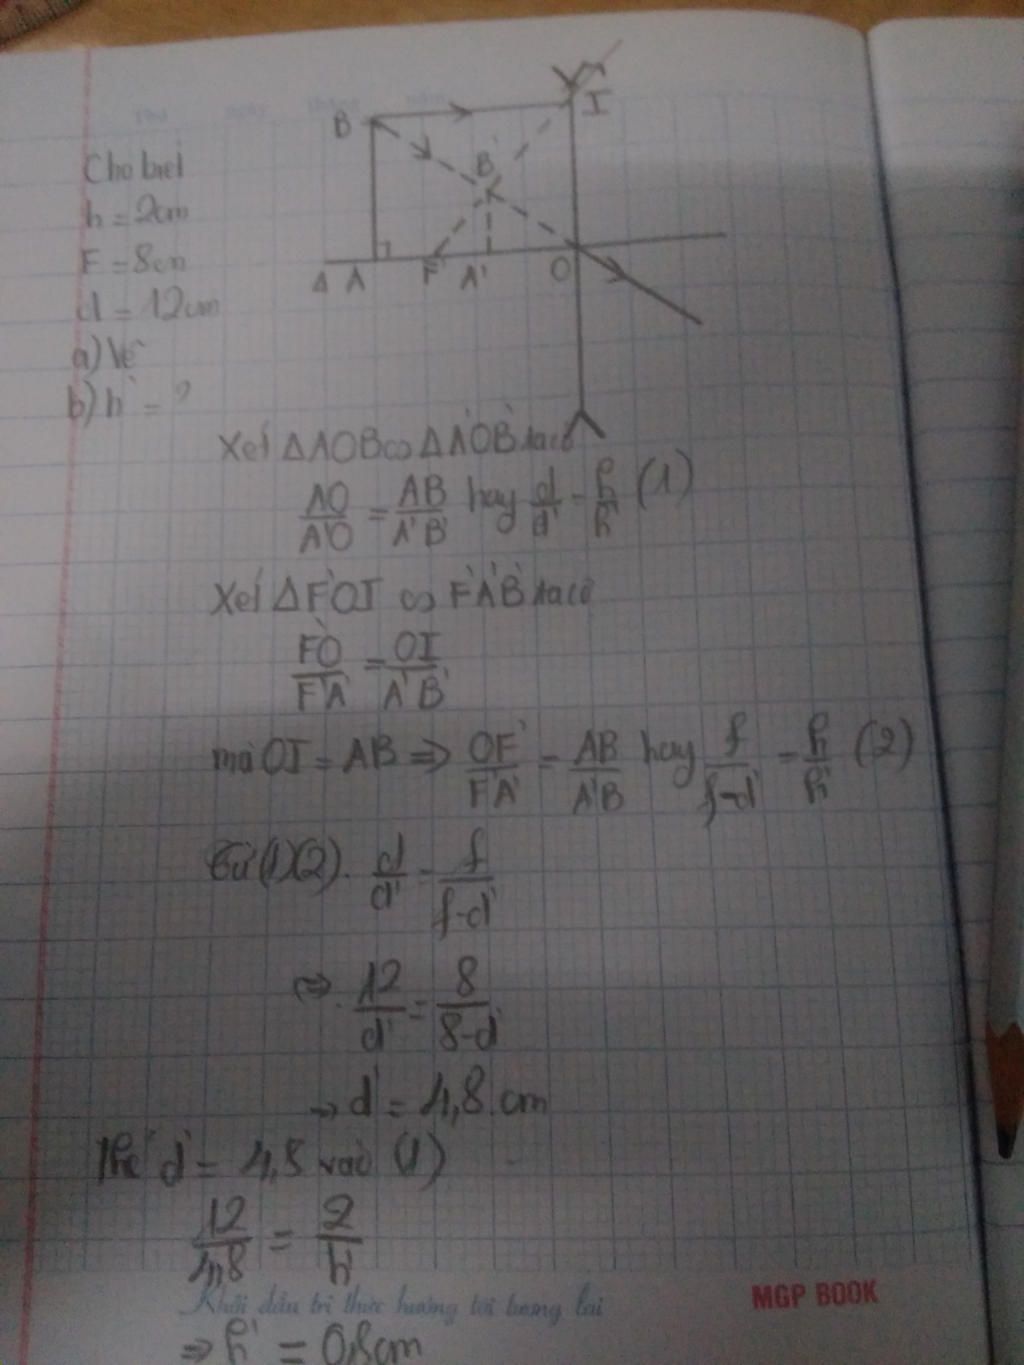 B
I
B'
Δ A F' A' O
Cho biết
h = 2cm
F = 8cm
d = 12cm
a) Vẽ
b) h' = ?
Xét ΔAOB ∽ ΔA'OB' ta có
AO/A'O = AB/A'B' hay d/d' = h/h' (1)
Xét ΔF'OI ∽ F'A'B' ta có
F'O/F'A' = OI/A'B'
mà OI = AB => OF'/F'A' = AB/A'B' hay f/f-d' = h/h' (2)
Từ (1)(2). d/d' = f/f-d'
<=> 12/d' = 8/8-d'
-> d' = 4,8 cm
Thế d' = 4,8 vào (1)
12/4,8 = 2/h'
Khởi đầu tri thức hướng tới tương lai
MGP BOOK
=> h' = 0,8cm